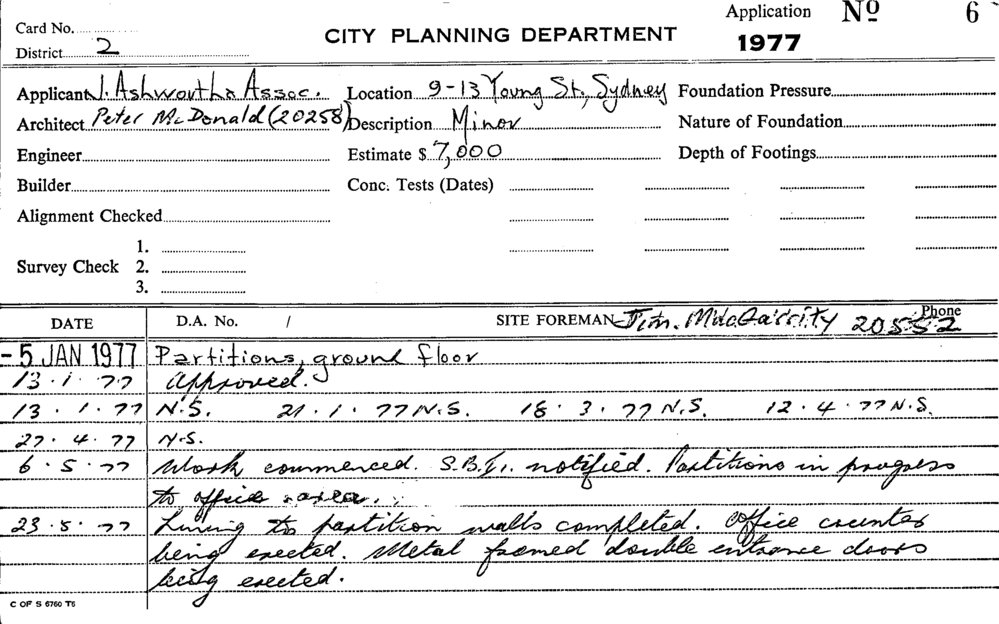 Card No.
District 2
CITY PLANNING DEPARTMENT
Application Nº 6
1977
Applicant J. Ashworth & Assoc. Location 9-13 Young St., Sydney Foundation Pressure
Architect Peter McDonald (20258) Description Minor Nature of Foundation
Engineer Estimate $ 7,000 Depth of Footings
Builder Conc. Tests (Dates)
Alignment Checked
1.
Survey Check 2.
3.
DATE D.A. No. / SITE FOREMAN Jim. MacGarrity 20552 Phone
-5 JAN 1977 Partitions, ground floor
13.1.77 Approved.
13.1.77 N.S. 21.1.77 N.S. 18.3.77 N.S. 12.4.77 N.S.
27.4.77 N.S.
6.5.77 Work commenced. notified. Partitions in progress
to office area.
23.5.77 Lining to partition walls completed. Office counter
being erected. Metal framed double entrance doors
being erected.
C OF S 6760 T6